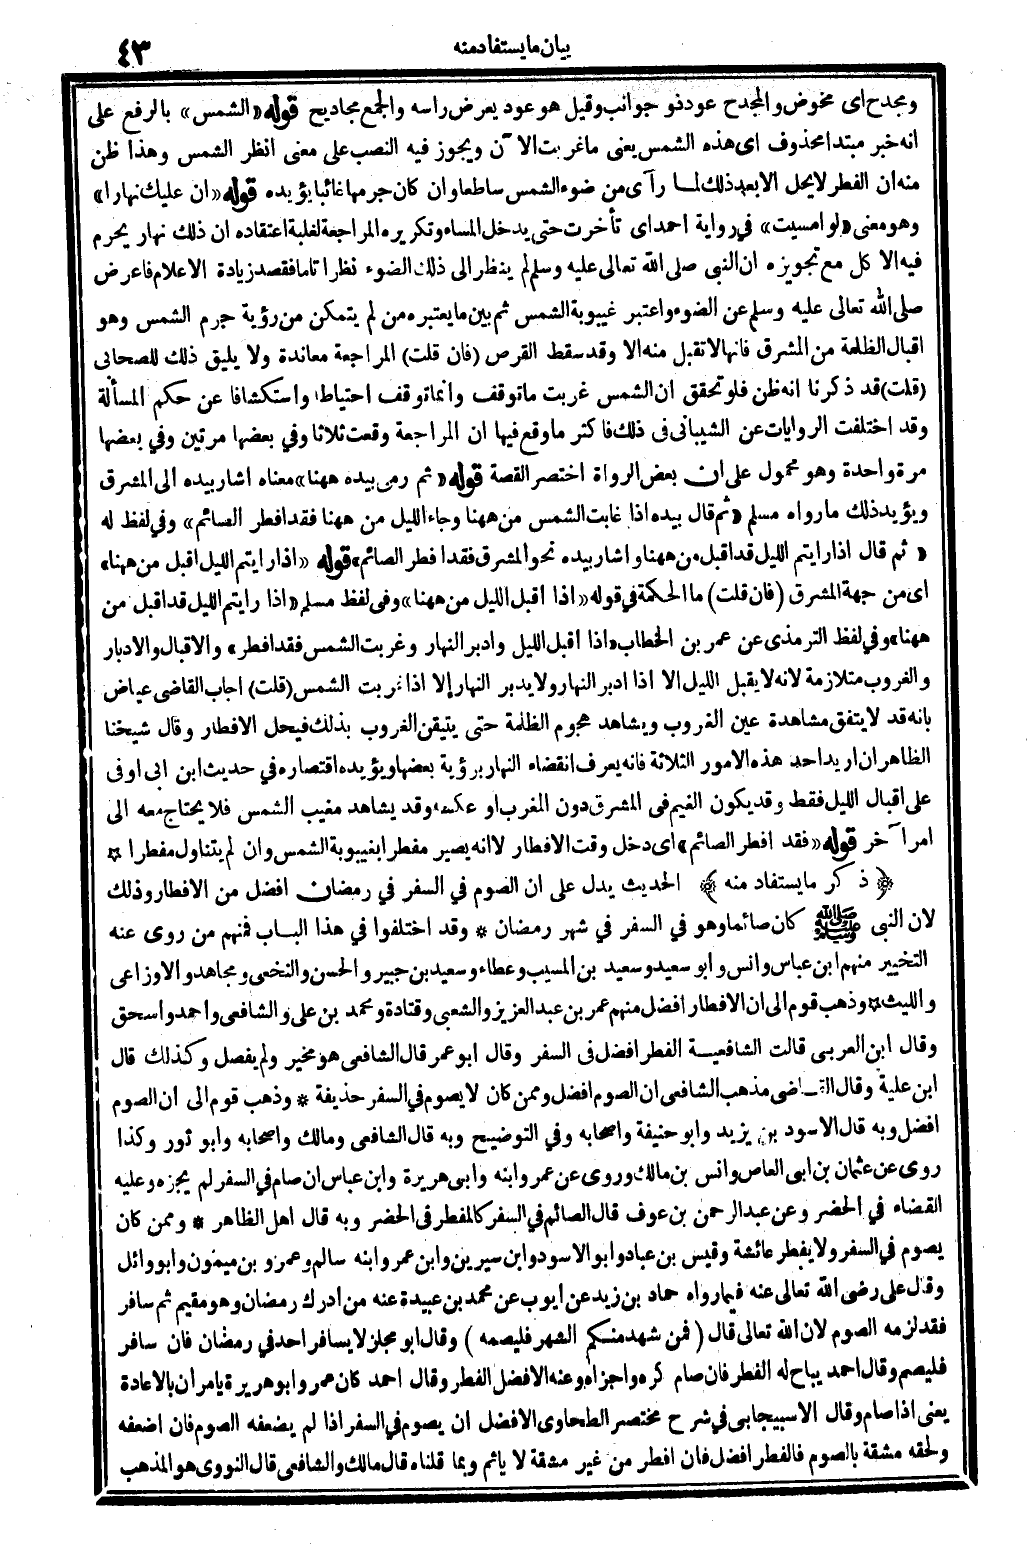 بيان ما يستفاد منه
٤٣
ومجدح اى مخوض والمجدح عود ذو جوانب وقيل هو عود يعرض راسه والجمع مجاديح قوله «الشمس» بالرفع على
انه خبر مبتدا محذوف اى هذه الشمس يعنى ما غربت الا ٓن ويجوز فيه النصب على معنى انظر الشمس وهذا ظن
منه ان الفطر لا يحل الا بعد ذلك لما رآى من ضوء الشمس ساطعا وان كان جرمها غائبا يؤيده قوله «ان عليك نهارا»
وهو معنى «لو امسيت» في رواية احمد اى تأخرت حتى يدخل المساء وتكريره المراجعة لغلبة اعتقاده ان ذلك نهار يحرم
فيه الا كل مع تجويزه ان النبي صلى الله تعالى عليه وسلم لم ينظر الى ذلك الضوء نظرا تاما فقصد زيادة الاعلام فاعرض
صلى الله تعالى عليه وسلم عن الضوء واعتبر غيبوبة الشمس ثم بين ما يعتبره من لم يتمكن من رؤية جرم الشمس وهو
اقبال الظلمة من المشرق فانها لا تقبل منه الا وقد سقط القرص (فان قلت) المراجعة معاندة ولا يليق ذلك للصحابى
(قلت) قد ذكرنا انه ظن فلو تحقق ان الشمس غربت ما توقف وانما توقف احتياطا واستكشافا عن حكم المسألة
وقد اختلفت الروايات عن الشيبانى فى ذلك فاكثر ما وقع فيها ان المراجعة وقعت ثلاثا وفي بعضها مرتين وفي بعضها
مرة واحدة وهو محمول على ان بعض الرواة اختصر القصة قوله «ثم رمى بيده ههنا» معناه اشار بيده الى المشرق
ويؤيد ذلك ما رواه مسلم «ثم قال بيده اذا غابت الشمس من ههنا وجاء الليل من ههنا فقد افطر الصائم» وفي لفظ له
«ثم قال اذا رايتم الليل قد اقبل من ههنا واشار بيده نحو المشرق فقد افطر الصائم» قوله «اذا رايتم الليل اقبل من ههنا»
اى من جهة المشرق (فان قلت) ما الحكمة في قوله «اذا اقبل الليل من ههنا» وفى لفظ مسلم «اذا رايتم الليل قد اقبل من
ههنا» وفي لفظ الترمذى عن عمر بن الخطاب «اذا اقبل الليل وادبر النهار وغربت الشمس فقد افطر» والاقبال والادبار
والغروب متلازمة لانه لا يقبل الليل الا اذا ادبر النهار ولا يدبر النهار إلا اذا غربت الشمس (قلت) اجاب القاضى عياض
بانه قد لا يتفق مشاهدة عين الغروب ويشاهد هجوم الظلمة حتى يتيقن الغروب بذلك فيحل الافطار وقال شيخنا
الظاهر ان اريد احد هذه الامور الثلاثة فانه يعرف انقضاء النهار برؤية بعضها ويؤيده اقتصاره في حديث ابن ابى اوفى
على اقبال الليل فقط وقد يكون الغيم فى المشرق دون المغرب او عكسه وقد يشاهد مغيب الشمس فلا يحتاج معه الى
امر آخر قوله «فقد افطر الصائم» اى دخل وقت الافطار لا انه يصير مفطرا بغيبوبة الشمس وان لم يتناول مفطرا ¤
﴿ ذكر ما يستفاد منه ﴾ الحديث يدل على ان الصوم في السفر في رمضان افضل من الافطار وذلك
لان النبى ﷺ كان صائما وهو في السفر في شهر رمضان * وقد اختلفوا في هذا الباب فمنهم من روى عنه
التخيير منهم ابن عباس وانس وابو سعيد وسعيد بن المسيب وعطاء وسعيد بن جبير والحسن والنخعى ومجاهد والاوزاعى
والليث ¤ وذهب قوم الى ان الافطار افضل منهم عمر بن عبد العزيز والشعبي وقتادة ومحمد بن على والشافعى واحمد واسحق
وقال ابن العربى قالت الشافعية الفطر افضل فى السفر وقال ابو عمر قال الشافعى هو مخير ولم يفصل وكذلك قال
ابن علية وقال القاضى مذهب الشافعى ان الصوم افضل وممن كان لا يصوم في السفر حذيفة * وذهب قوم الى ان الصوم
افضل وبه قال الاسود بن يزيد وابو حنيفة واصحابه وفي التوضيح وبه قال الشافعى ومالك واصحابه وابو ثور وكذا
روى عن عثمان بن ابى العاص وانس بن مالك وروى عن عمر وابنه وابى هريرة وابن عباس ان صام في السفر لم يجزه وعليه
القضاء في الحضر وعن عبد الرحمن بن عوف قال الصائم في السفر كالمفطر فى الحضر وبه قال اهل الظاهر * وممن كان
يصوم في السفر ولا يفطر عائشة وقيس بن عباد وابو الاسود وابن سيرين وابن عمر وابنه سالم وعمرو بن ميمون وابو وائل
وقال على رضى الله تعالى عنه فيما رواه حماد بن زيد عن ايوب عن محمد بن عبيدة عنه من أدرك رمضان وهو مقيم ثم سافر
فقد لزمه الصوم لان الله تعالى قال ( فمن شهد منكم الشهر فليصمه ) وقال ابو مجلز لا يسافر احد في رمضان فان سافر
فليصم وقال احمد يباح له الفطر فان صام كره واجزأه وعنه الافضل الفطر وقال احمد كان عمر وابو هريرة يامرأن بالاعادة
يعنى اذا صام وقال الاسبيجابى في شرح مختصر الطحاوى الافضل ان يصوم في السفر اذا لم يضعفه الصوم فان اضعفه
ولحقه مشقة بالصوم فالفطر افضل فان افطر من غير مشقة لا يأثم وبما قلناه قال مالك والشافعى قال النووى هو المذهب